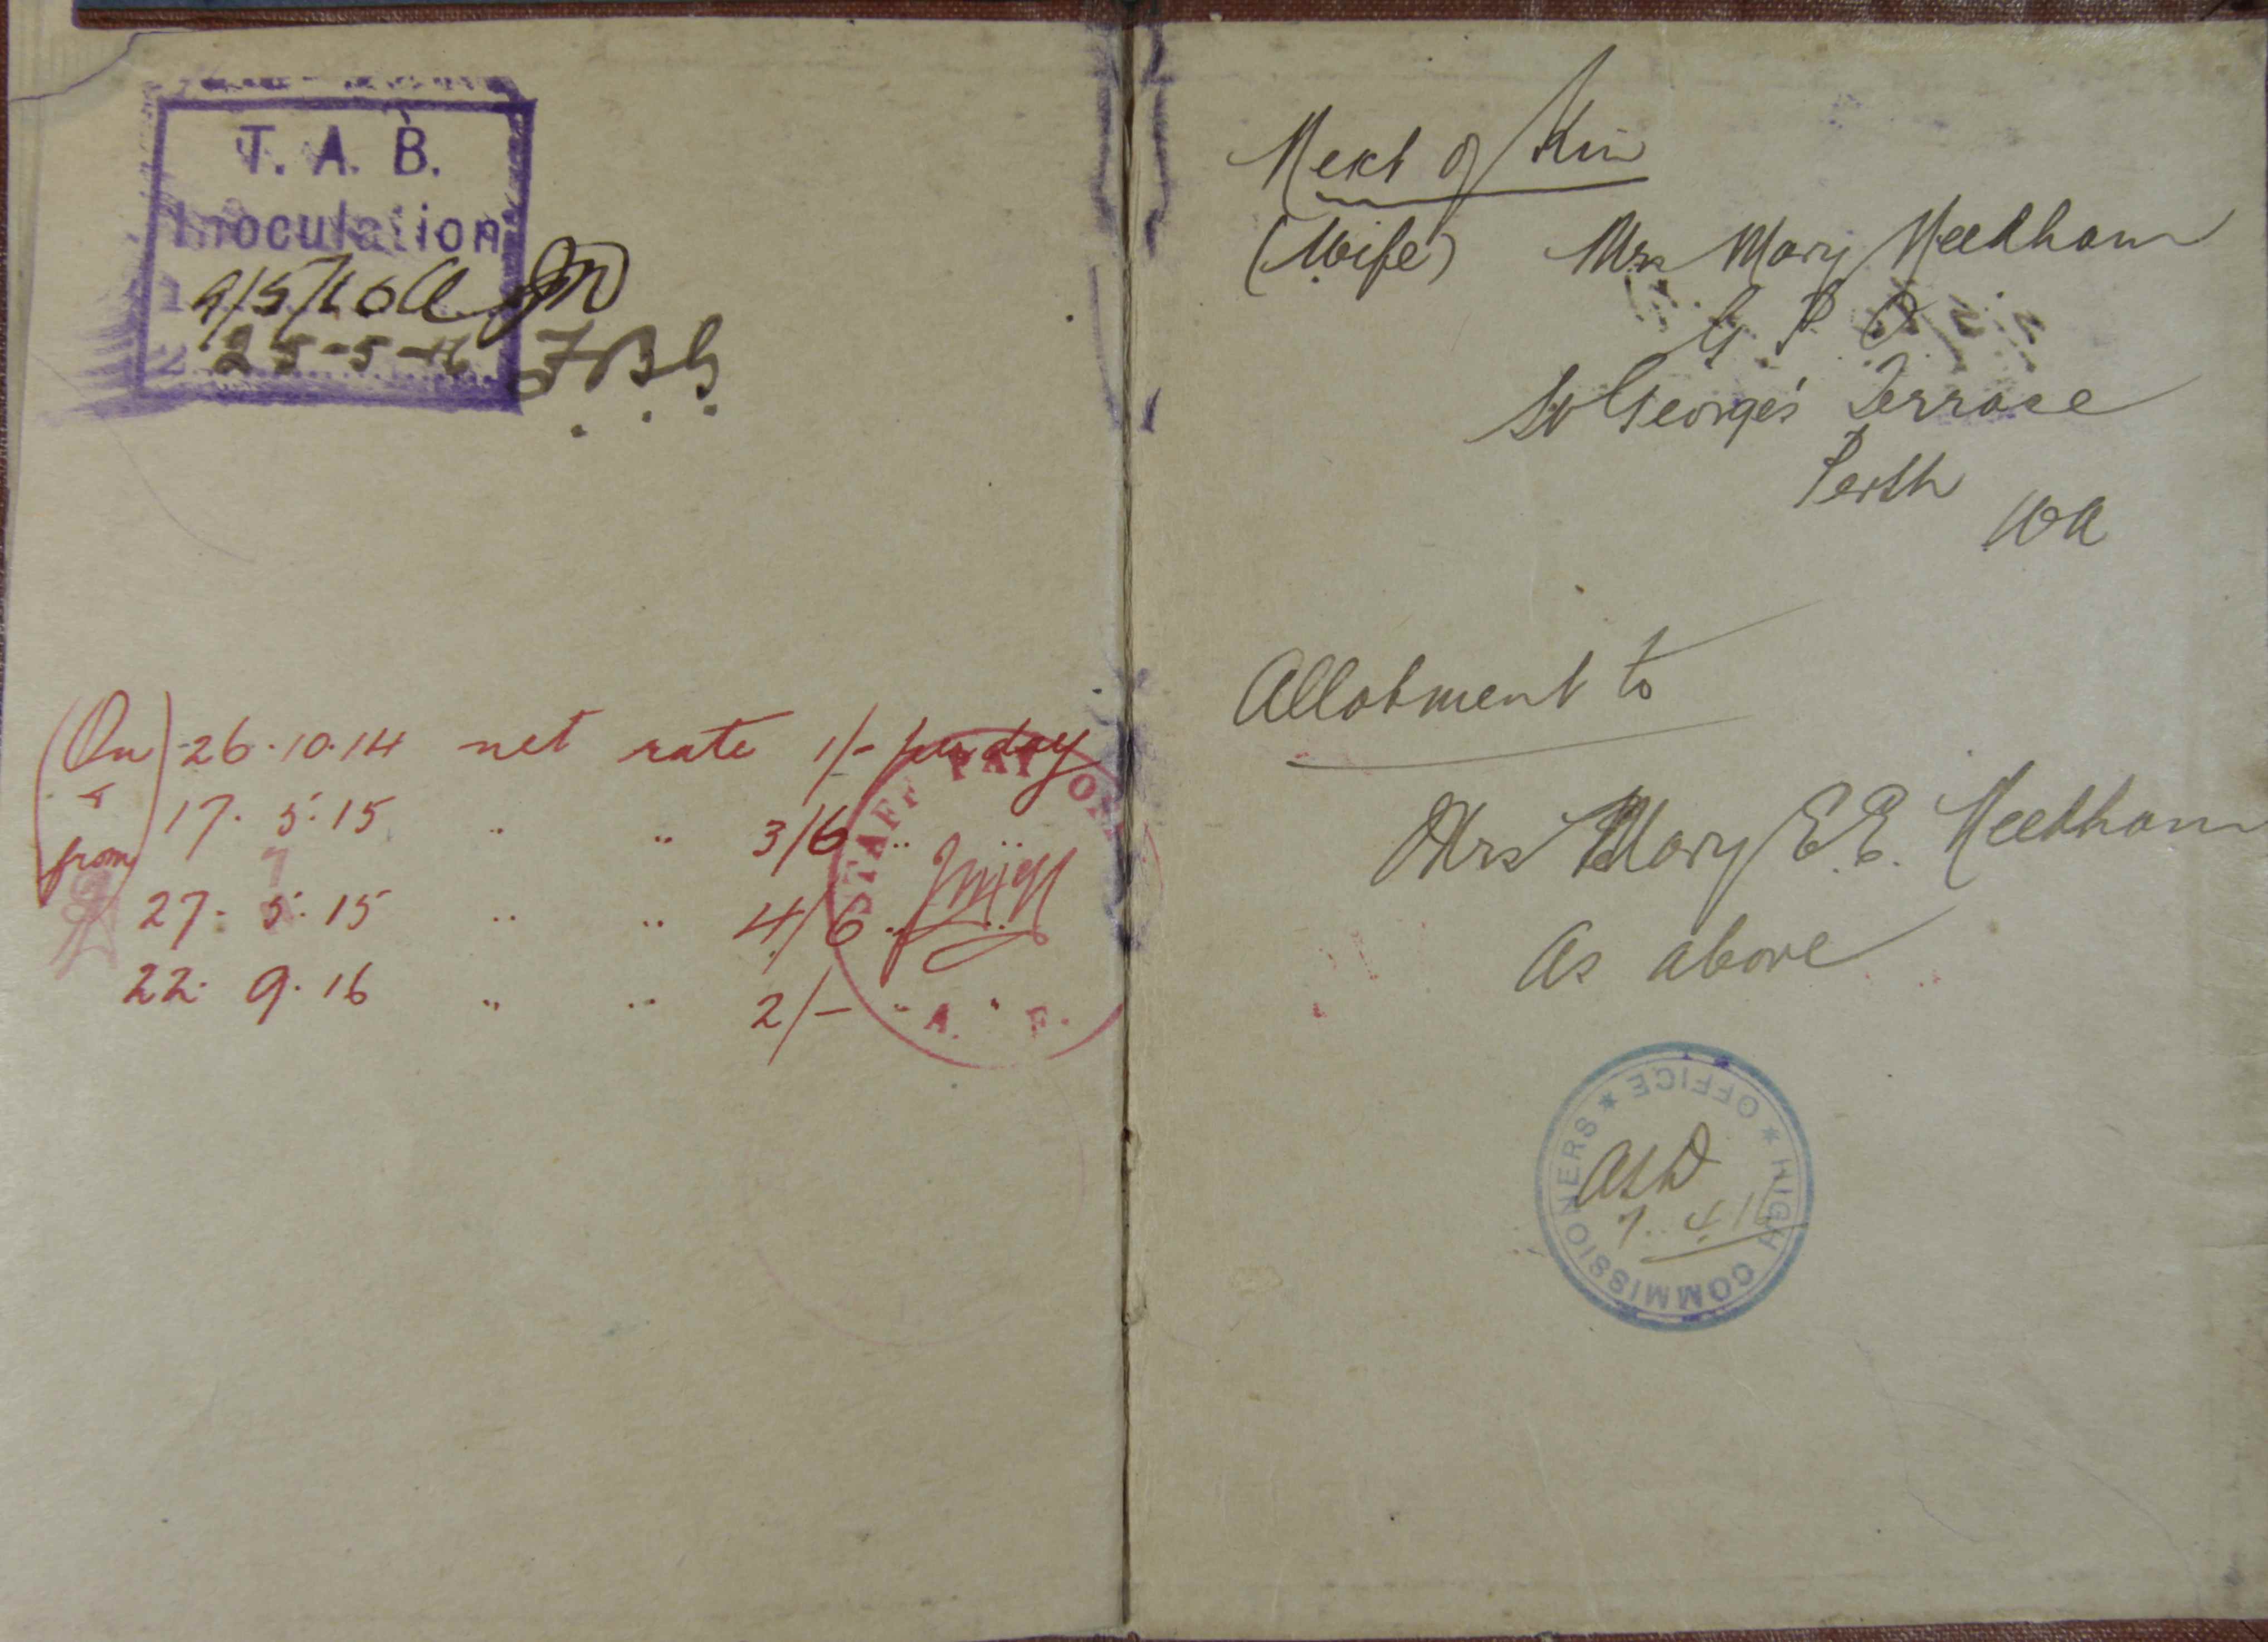 T. A. B.
Inoculation
9/5/16
25-5-16 F.B.G.
(On) 26.10.14 net rate 1/- per day
& 17. 5. 15 .. .. 3/6 ..
from
27. 5. 15 .. .. 4/6 .. ..
22. 9. 16 .. .. 2/- .. ..
STAFF PAY OFF
A. F.
Next of Kin
(Wife) Mrs Mary Needham
G P O
St George's Terrace
Perth
WA
Allotment to
Mrs Mary E.E. Needham
As above
HIGH COMMISSIONERS * OFFICE *